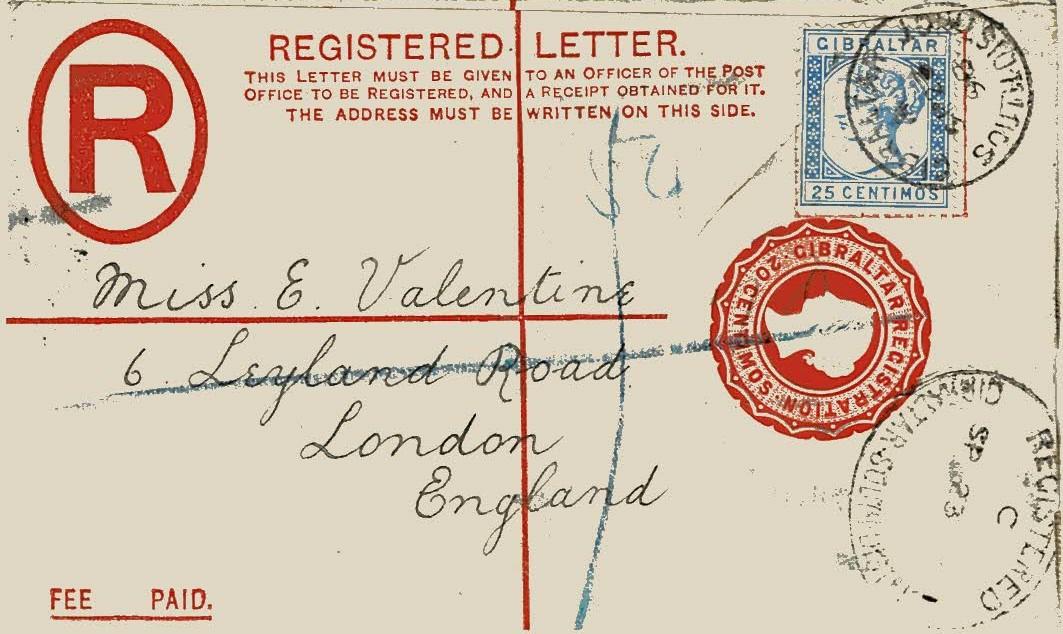 R
REGISTERED LETTER.
THIS LETTER MUST BE GIVEN TO AN OFFICER OF THE POST
OFFICE TO BE REGISTERED, AND A RECEIPT OBTAINED FOR IT.
THE ADDRESS MUST BE WRITTEN ON THIS SIDE.
GIBRALTAR
25 CENTIMOS
GIBRALTAR REGISTRATION
20 CENTIMOS
Miss E. Valentine
6 Leyland Road
London
England
REGISTERED
C
GIBRALTAR
SP
93
FEE PAID.